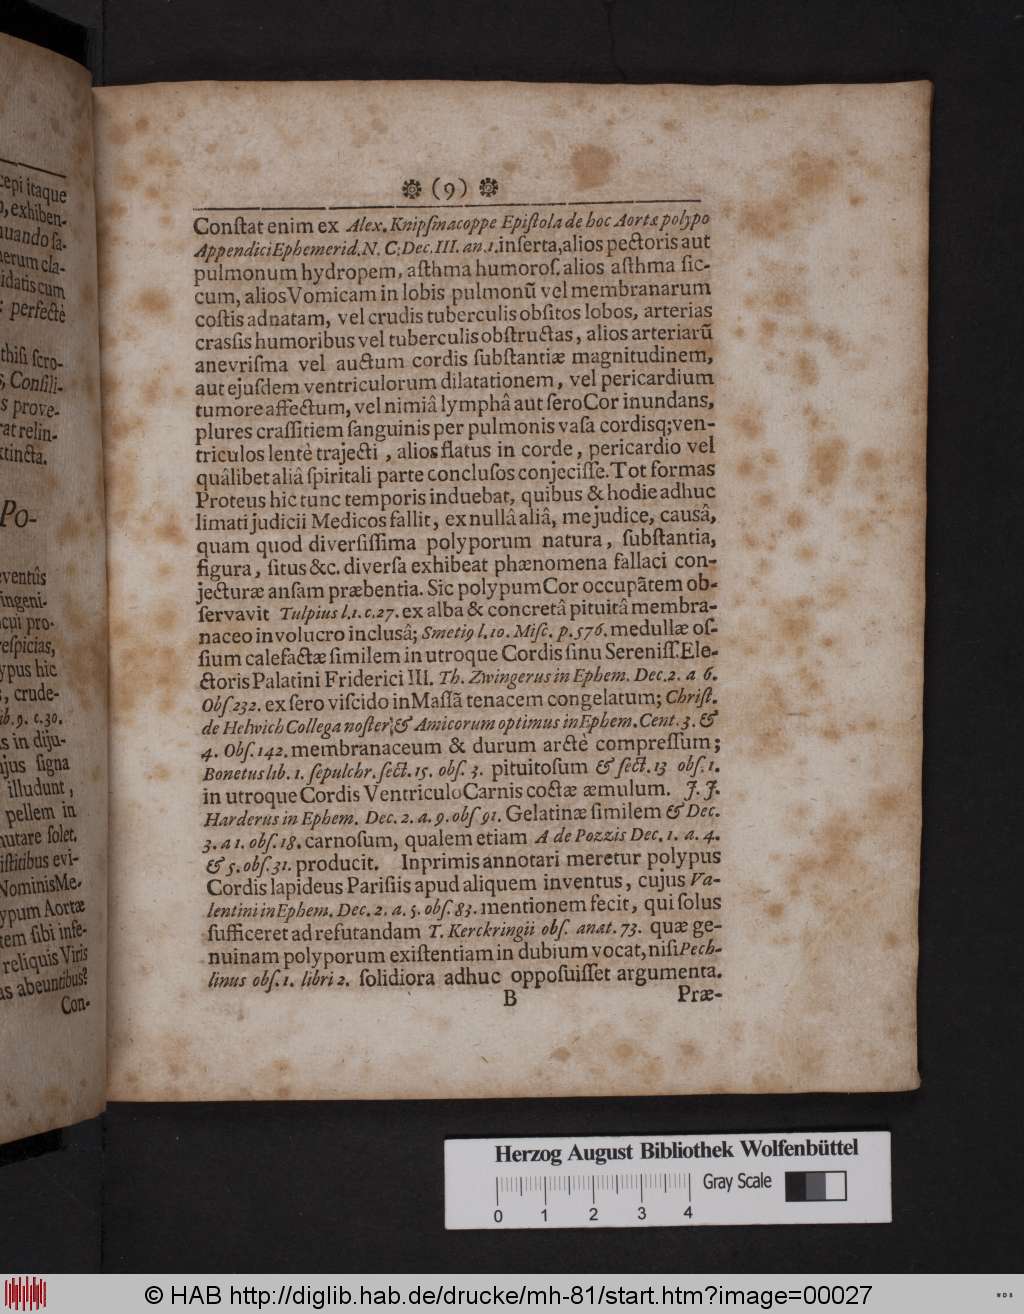 cepi itaque
o, exhiben-
quando ſa-
nerum cla-
idatis cum
: perfectè
thiſi ſcro-
s, Conſili-
s prove-
rat relin-
xtincta.
Po-
eventûs
ingeni-
cui pro-
reſpicias,
ypus hic
s, crude-
lib. 9. c. 30.
s in diju-
ujus ſigna
illudunt,
pellem in
mutare ſolet,
iſtitibus evi-
Nominis Me-
ypum Aortæ
tem ſibi infe-
reliquis Viris
as abeuntibus?
Con-
(9)
Conſtat enim ex Alex. Knipſmacoppe Epiſtola de hoc Aortæ polypo
Appendici Ephemerid. N. C. Dec. III. an. 1. inſerta, alios pectoris aut
pulmonum hydropem, aſthma humoroſ. alios aſthma ſic-
cum, alios Vomicam in lobis pulmonũ vel membranarum
coſtis adnatam, vel crudis tuberculis obſitos lobos, arterias
crasſis humoribus vel tuberculis obſtructas, alios arteriarũ
anevriſma vel auctum cordis ſubſtantiæ magnitudinem,
aut ejuſdem ventriculorum dilatationem, vel pericardium
tumore affectum, vel nimiâ lymphâ aut ſero Cor inundans,
plures craſſitiem ſanguinis per pulmonis vaſa cordisq; ven-
triculos lentè trajecti, alios flatus in corde, pericardio vel
quâlibet aliâ ſpiritali parte concluſos conjeciſſe. Tot formas
Proteus hic tunc temporis induebat, quibus & hodie adhuc
limati judicii Medicos fallit, ex nullâ aliâ, me judice, causâ,
quam quod diverſiſſima polyporum natura, ſubſtantia,
figura, ſitus &c. diverſa exhibeat phænomena fallaci con-
jecturæ anſam præbentia. Sic polypum Cor occupãtem ob-
ſervavit Tulpius l. 1. c. 27. ex alba & concretâ pituitâ membra-
naceo involucro inclusâ; Smetiꝰ l. 10. Miſc. p. 576. medullæ oſ-
ſium calefactæ ſimilem in utroque Cordis ſinu Sereniſſ. Ele-
ctoris Palatini Friderici III. Th. Zwingerus in Ephem. Dec. 2. a 6.
Obſ 232. ex ſero viſcido in Maſſã tenacem congelatum; Chriſt.
de Helwich Collega noſter & Amicorum optimus in Ephem. Cent. 3. &
4. Obſ. 142. membranaceum & durum arctè compreſſum;
Bonetus lib. 1. ſepulchr. ſect. 15. obſ. 3. pituitoſum & ſect. 13 obſ. 1.
in utroque Cordis Ventriculo Carnis coctæ æmulum. J. J.
Harderus in Ephem. Dec. 2. a. 9. obſ 91. Gelatinæ ſimilem & Dec.
3. a 1. obſ. 18. carnoſum, qualem etiam A de Pozzis Dec. 1. a. 4.
& 5. obſ. 31. producit. Inprimis annotari meretur polypus
Cordis lapideus Pariſiis apud aliquem inventus, cujus Va-
lentini in Ephem. Dec. 2. a. 5. obſ. 83. mentionem fecit, qui ſolus
ſufficeret ad refutandam T. Kerckringii obſ. anat. 73. quæ ge-
nuinam polyporum exiſtentiam in dubium vocat, niſi Pech-
linus obſ. 1. libri 2. ſolidiora adhuc oppoſuiſſet argumenta.
B Præ-
Herzog August Bibliothek Wolfenbüttel
Gray Scale
0 1 2 3 4
© HAB http://diglib.hab.de/drucke/mh-81/start.htm?image=00027